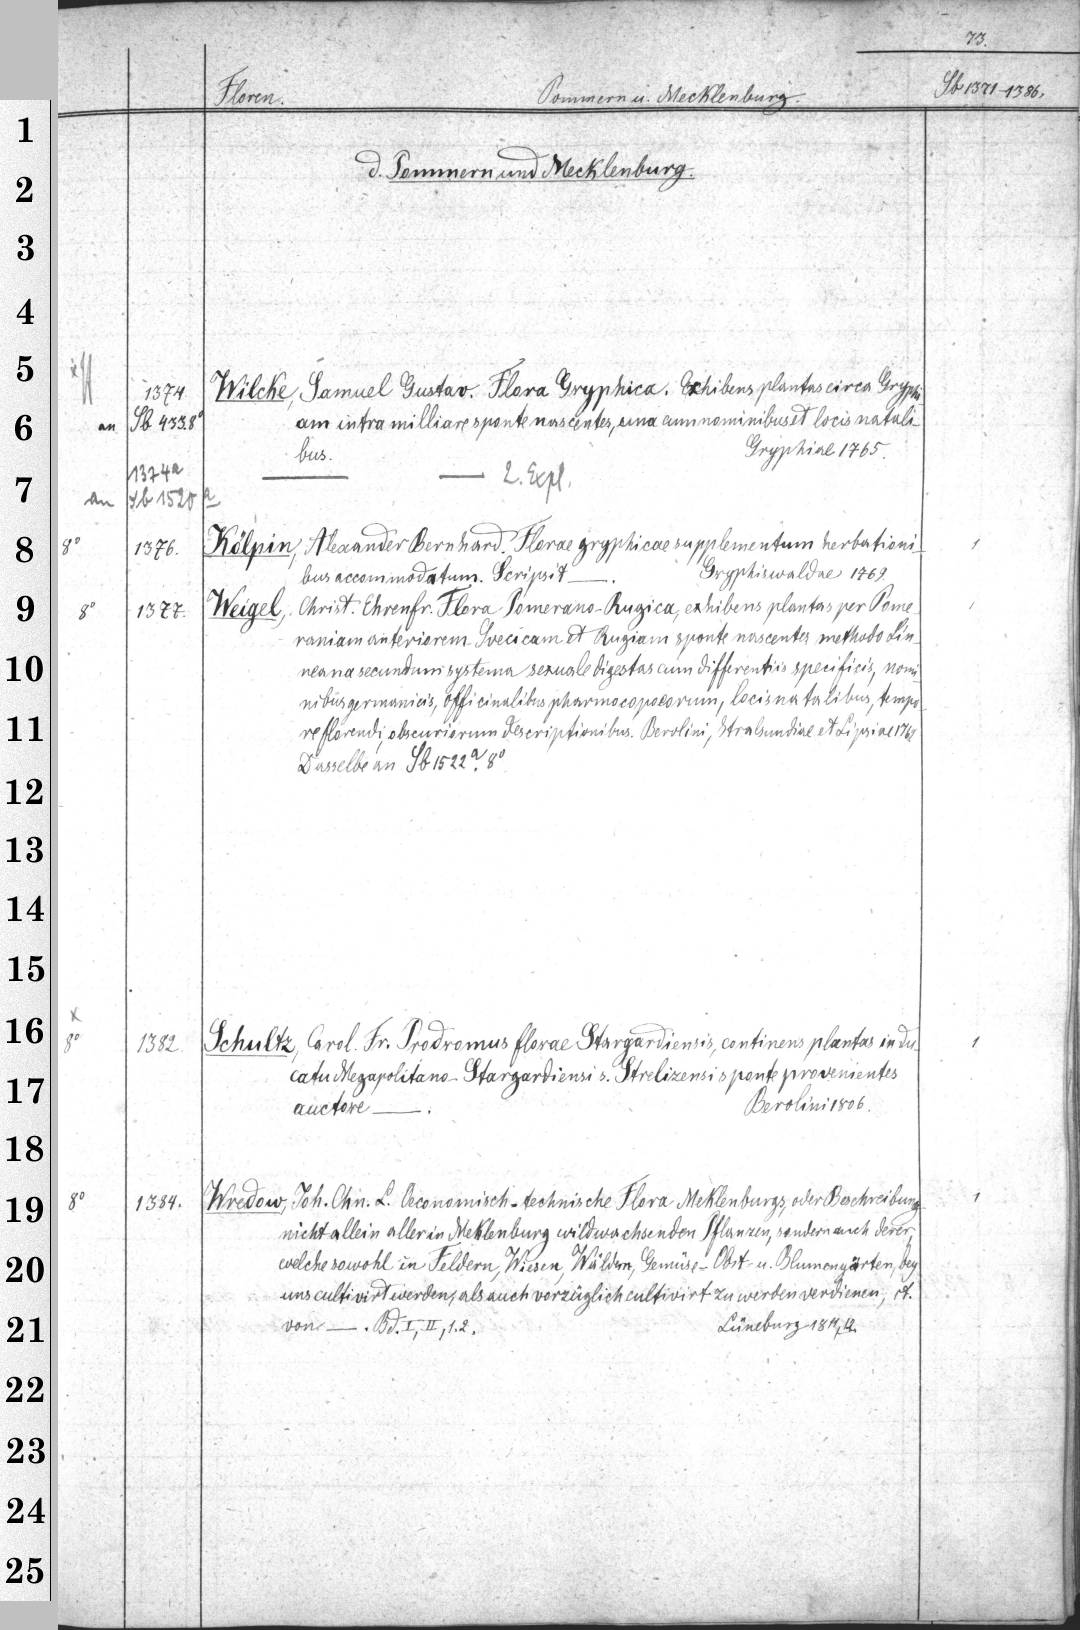 73.
Floren. Pommern u. Mecklenburg. Sb 1371-1386.
1
d. Pommern und Mecklenburg.
2
3
4
5
1374 Wilcke, Samuel Gustav. Flora Gryphica. Exhibens plantas circa Gryphi-
6 an Sb 433.8° am intra milliare sponte nascentes, una cum nominibus et locis natali-
bus. Gryphiae 1765.
1374a ——— ——— 2. Expl.
7 an Sb 1520 a
8 8° 1376. Kölpin, Alexander Bernhard. Florae gryphicae supplementum herbationi- 1
bus accommodatum. Scripsit ——. Gryphiswaldae 1769
9 8° 1377. Weigel, Christ. Ehrenfr. Flora Pomerano-Rugica, exhibens plantas per Pome- 1
raniam anteriorem Svecicam et Rugiam sponte nascentes methodo Lin-
10 neana secundum systema sexuale digestas cum differentiis specificis, nomi-
nibus germanicis, officinalibus pharmocopoeorum, locis natalibus, tempo-
11 re florendi, obscuriorum descriptionibus. Berolini, Stralsundiae et Lipsiae 1769
Dasselbe an Sb 1522a. 8°
12
13
14
15
x
16 8° 1382. Schultz, Carol. Fr. Prodromus florae Stargardiensis, continens plantas in du- 1
catu Megapolitano-Stargardiensi s. Strelizensi sponte provenientes
17 auctore ——. Berolini 1806.
18
19 8° 1384. Wredow, Joh. Chn. L. Oeconomisch-technische Flora Meklenburgs, oder Beschreibung 1
nicht allein aller in Meklenburg wildwachsenden Pflanzen, sondern auch derer,
20 welche sowohl in Feldern, Wiesen, Wäldern, Gemüse- Obst- u. Blumengärten, bey
uns cultivirt werden, als auch vorzüglich cultivirt zu werden verdienen, et.
21 von ——. Bd. I, II, 1.2. Lüneburg 1811,12.
22
23
24
25